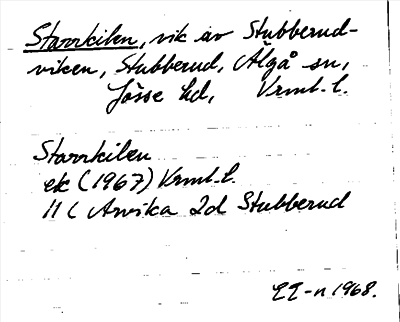 Starrkilen, vik av Stubberud-
viken, Stubberud, Älgå sn,
Jösse hd, Vrml. l.
Starrkilen
ek (1967) Vrml. l.
11 C Arvika 2d Stubberud
EE-n 1968.